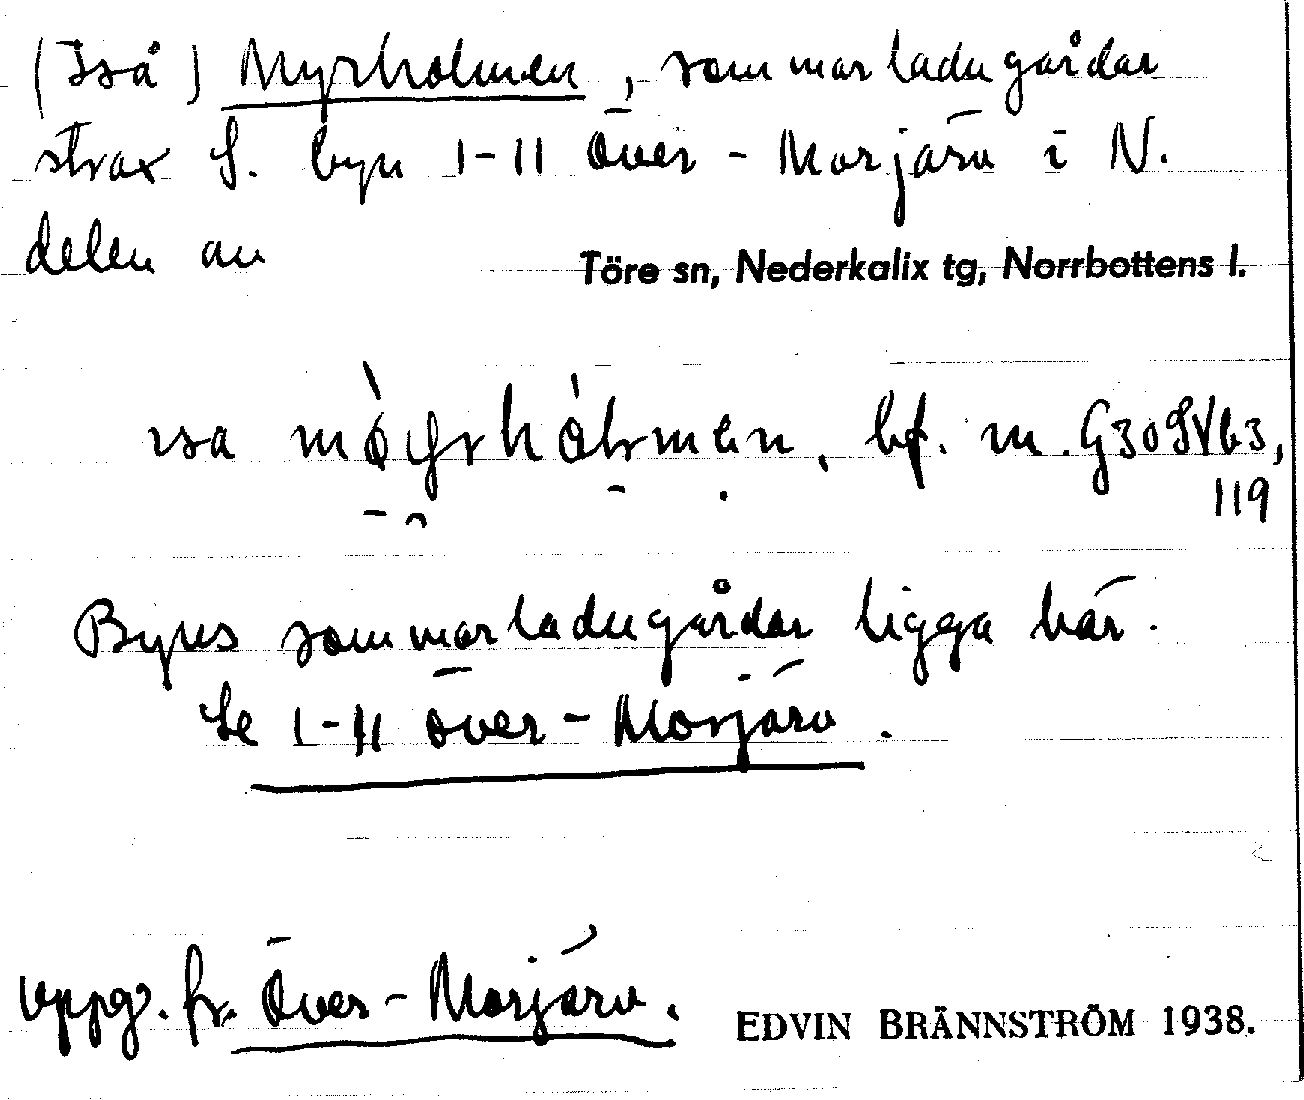 (Iså) Myrholmen, sommarladugårdar
strax S. byn 1-11 Över-Morjärv i N.
delen av
Töre sn, Nederkalix tg, Norrbottens l.
bf. m. G30SV63,
119
Byns sommarladugårdar ligga här.
Se 1-11 Över-Morjärv.
Uppg. fr. Över-Morjärv.
EDVIN BRÄNNSTRÖM 1938.